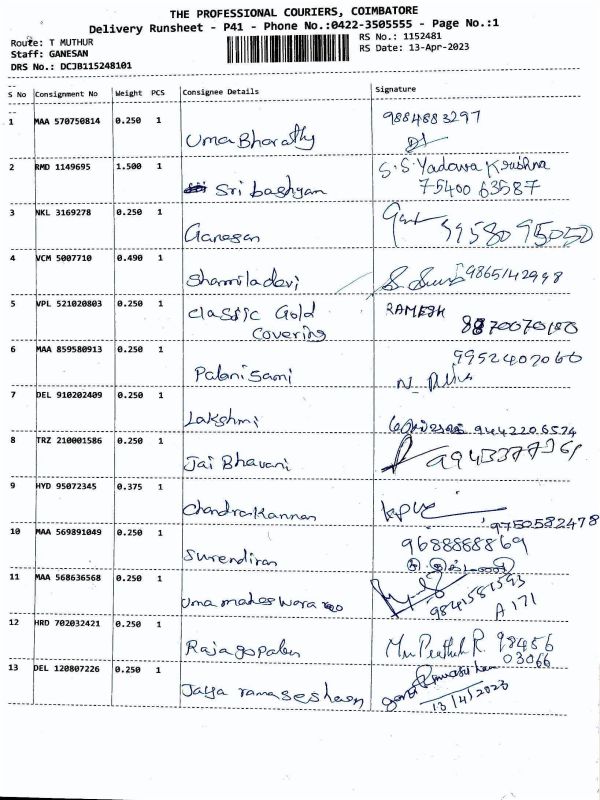 THE PROFESSIONAL COURIERS, COIMBATORE
Delivery Runsheet - P41 - Phone No.:0422-3505555 - Page No.:1
Route: T MUTHUR
RS No.: 1152481
Staff: GANESAN
RS Date: 13-Apr-2023
DRS No.: DCJB115248101
S No Consignment No Weight PCS Consignee Details Signature
1 MAA 570750814 0.250 1 Uma Bharathy 9884883297
2 RMD 1149695 1.500 1 Sri bashyam S.S.Yadava Krishna
75400 63587
3 NKL 3169278 0.250 1 Ganesan
4 VCM 5007710 0.490 1 Sharmiladevi 9865142998
5 VPL 521020803 0.250 1 Classic Gold RAMESH
Covering
6 MAA 859580913 0.250 1 Palanisami 9952407060
7 DEL 910202409 0.250 1 Lakshmi 9442206574
8 TRZ 210001586 0.250 1 Jai Bhavani
9 HYD 95072345 0.375 1 Chandrakannan
9750582478
10 MAA 569891049 0.250 1 Surendiran 9688888869
11 MAA 568636568 0.250 1 Uma maheswara rao 9841581593
A 171
12 HRD 702032421 0.250 1 Rajagopalan 98456
03066
13 DEL 120807226 0.250 1 Jaya ramaseshan
13/4/2023